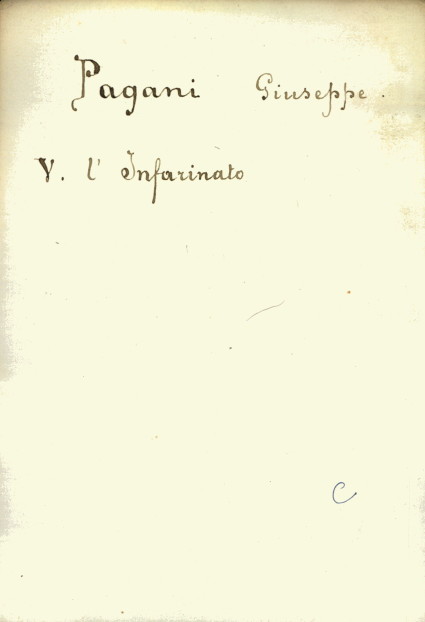 Pagani Giuseppe.
V. l' Infarinato
C